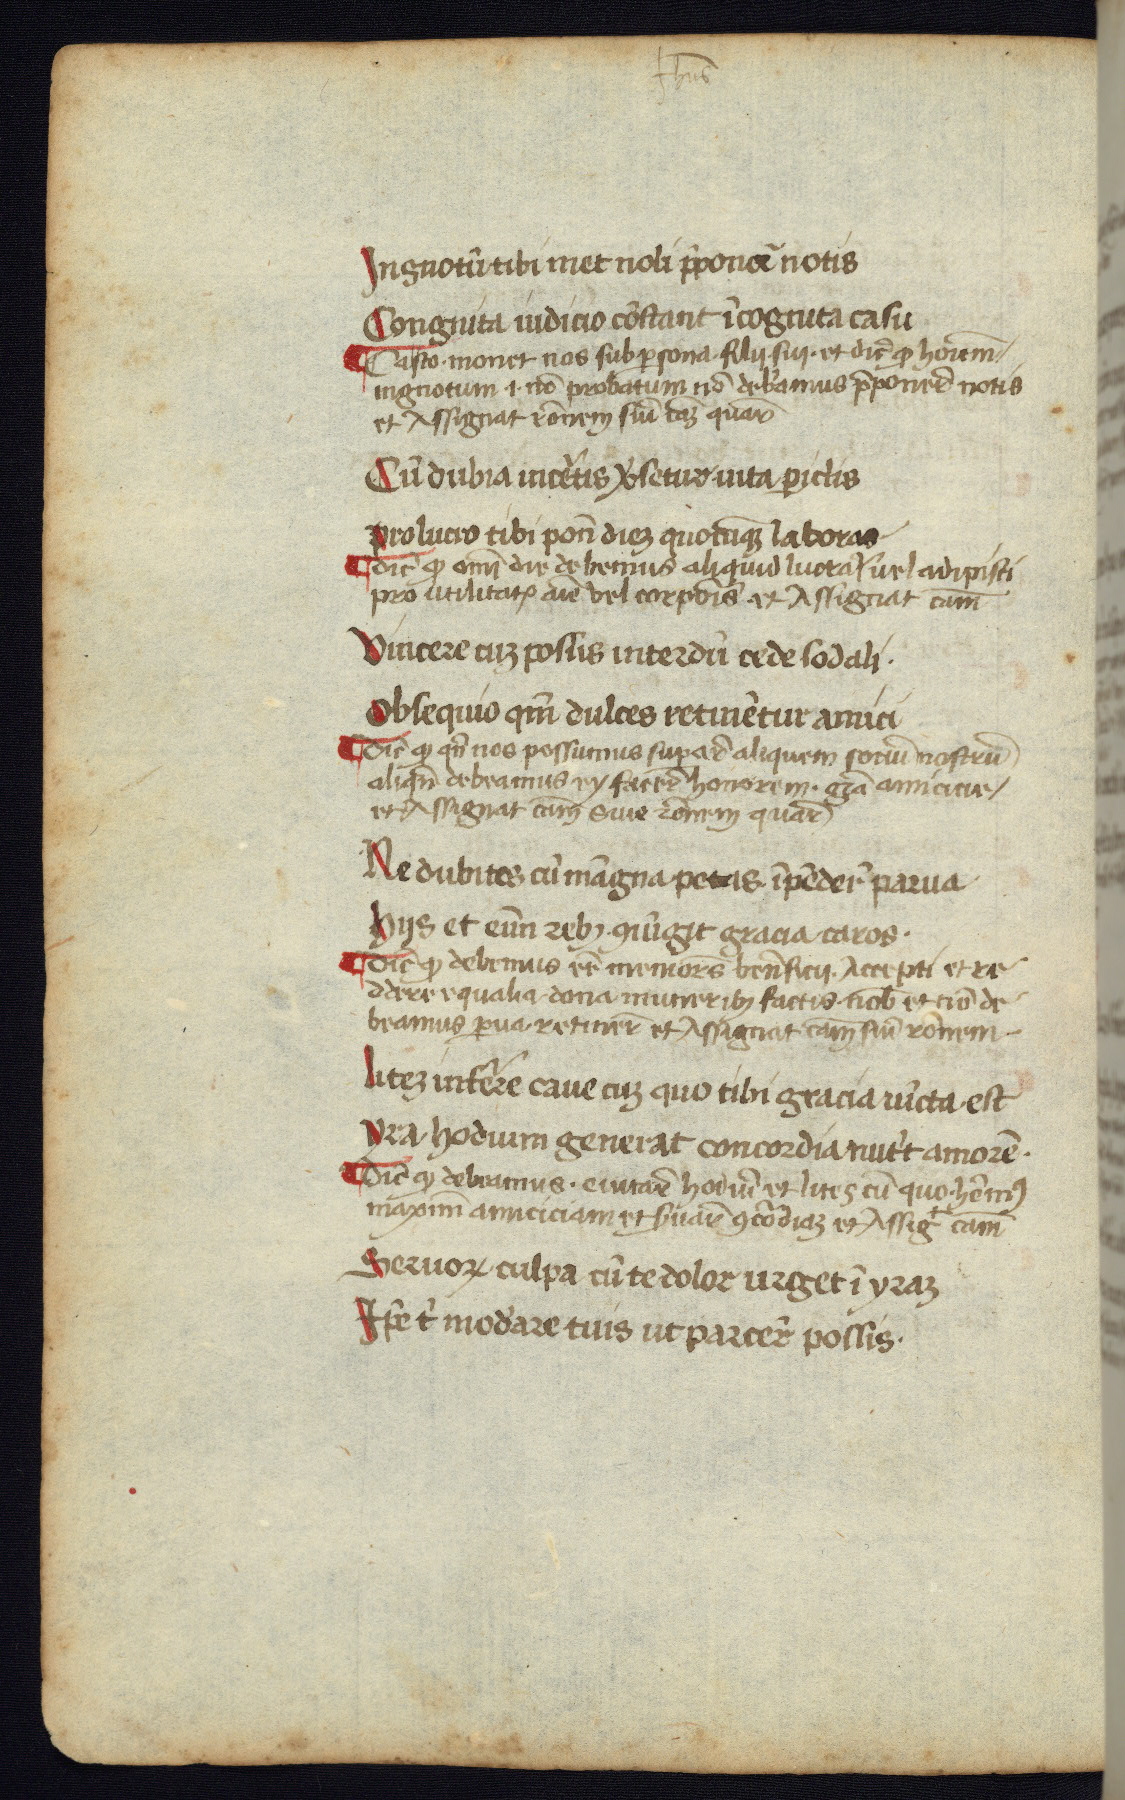 Jhus
Ingnotū tibi met noli p̄ponēr notis
Congnita iudicio cōstant īcognita casu
Casto monet nos sub persona filij sui et dic̄ ꝙ hoīem
ingnotum .i. nō probatum nō debeamus p̄poner̄ notis
et Assignat rōnem siue cāz quar̄
Cū dubia incertis v̓setur uita periclis
pro lucro tibi pone diez quotcūqꝫ laboras
dic̄ ꝙ omī die debemus aliquid lucrar̄ uel adipisci
pro utilitate aīe vel corporis et Assignat cām
Vincere cuz possis interdū cede sodali.
Obsequio qm̄ dulces retinētur amici
Dic̄ ꝙ qn̄ nos possumus superar̄ aliquem sociū nostrū
aliqn̄ debeamus ey facer̄ honorem. grā amicicie
et Assignat cām siue rōnem quar̄
Ne dubites cū māgna petas īpēder̄ parua
hijs et enī rebꝫ ꝯiūgit gracia caros.
Dic̄ ꝙ debemus eē memores beneficij Accepti et re
ddere equalia dona muneribꝫ factis nob̄ et nō de
beamus parua retiner̄ et Assignat cām siue rōnem
litez inferre caue cuz quo tibi gracia iūcta est
yra hodium generat concordia nutrit amorē.
Dic̄ ꝙ debeamus euitar̄ hodiū et lites cū quo hēmꝰ
maximā amiciciam et seruar̄ ꝯcōdiaz et Assigt cām
Seruoꝝ culpa cū te dolor urget ī yraz
Ipse t̓ modare tuis ut parcer̄ possis.